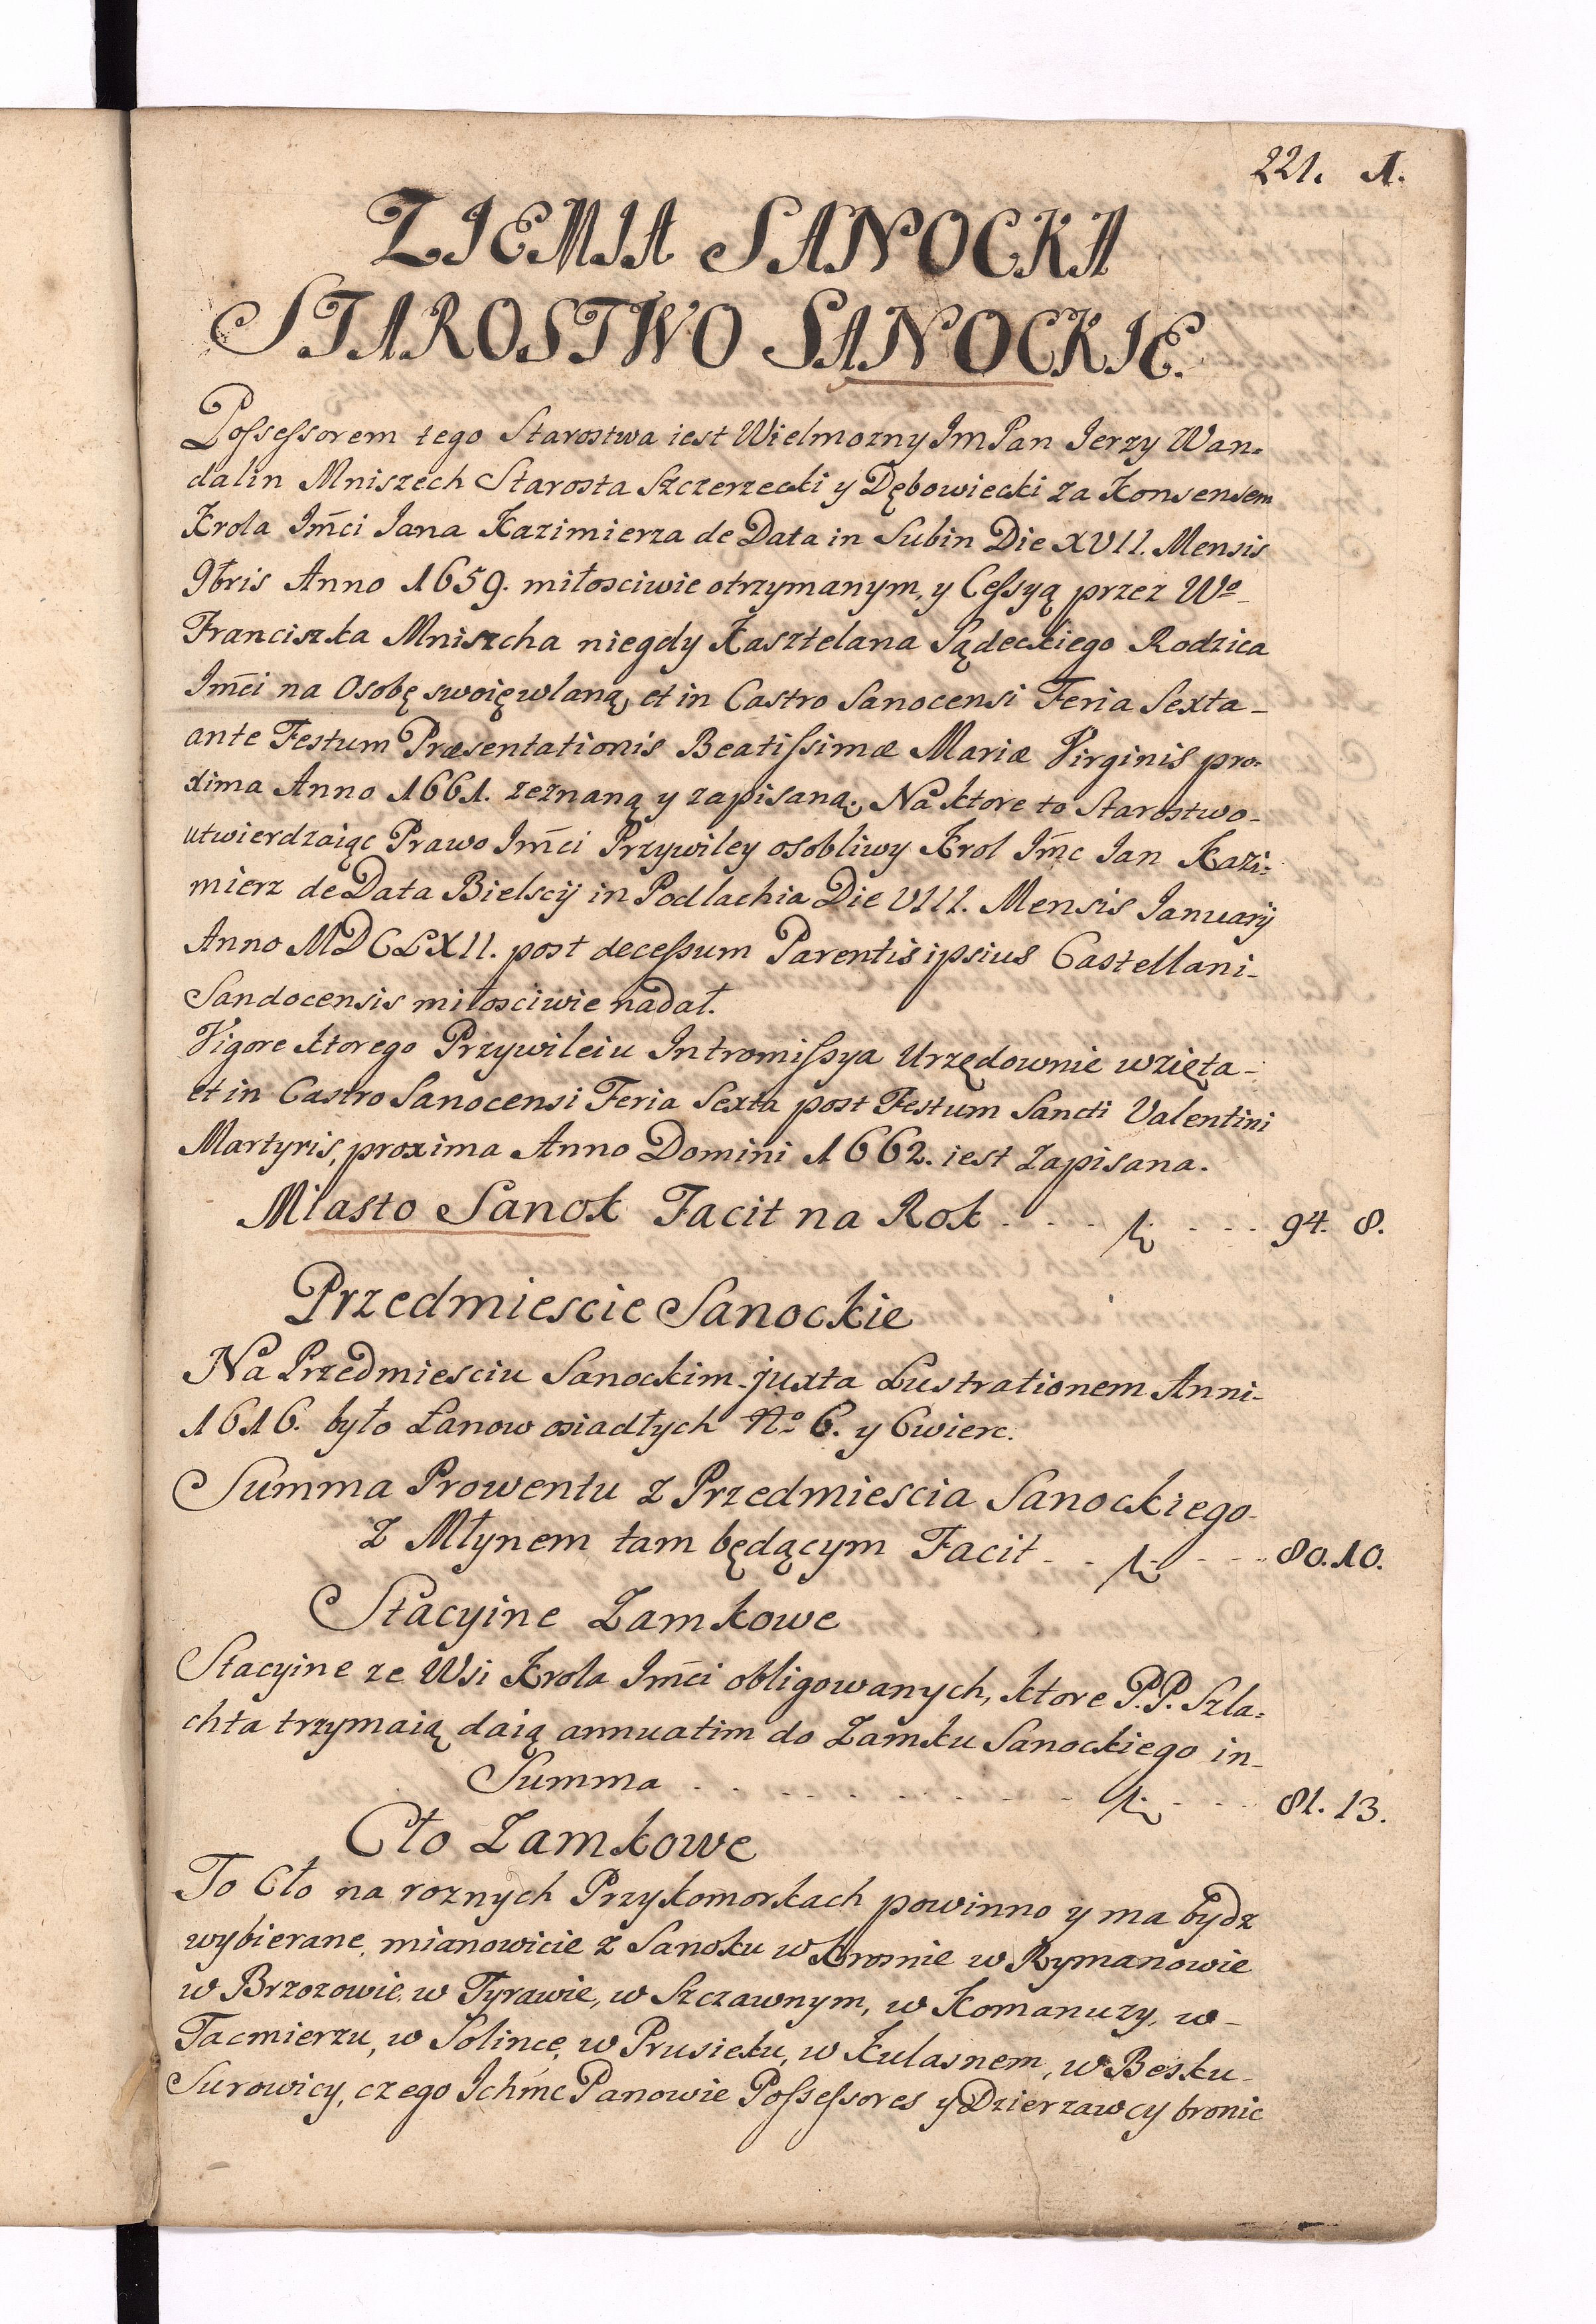 221. 1.
ZIEMIA SANOCKA
STAROSTWO SANOCKIE.
Possessorem tego Starostwa iest Wielmozny Im Pan Ierzy Wan=
dalin Mniszech Starosta Szczerzecki y Dębowiecki za Konsensem
Krola Imci Iana Kazimierza de Data in Lubin Die XVII. Mensis
9bris Anno 1659. miłosciwie otrzymanym, y Cessyą przez Wo
Franciszka Mniszcha niegdy Kasztelana Sądeckiego Rodzica
Imci na Osobę swoię wlaną, et in Castro Sanocensi Feria Sexta
ante Festum Præsentationis Beatissimæ Mariæ Virginis pro=
xima Anno 1661. zeznaną y zapisaną. Na ktore to Starostwo
utwierdzaiąc Prawo Imci Przywiley osobliwy Krol Imc Ian Kazi=
mierz de Data Bielscij in Podlachia Die VIII. Mensis Ianuarij
Anno MDCLXII. post decessum Parentis ipsius Castellani
Sandocensis miłosciwie nadał.
Vigore ktorego Przywileiu Intromissya Urzędownie wzięta
et in Castro Sanocensi Feria Sexta post Festum Sancti Valentini
Martyris, proxima Anno Domini 1662. iest zapisana.
Miasto Sanok Facit na Rok 94. 8.
Przedmiescie Sanockie
Na Przedmiesciu Sanockim juxta Lustrationem Anni
1616. było Łanow osiadłych No 6. y Cwierc.
Summa Prowentu z Przedmiescia Sanockiego
z Młynem tam będącym Facit 80. 10.
Stacyine Zamkowe
Stacyine ze Wsi Krola Imci obligowanych, ktore P.P. Szla=
chta trzymaią, daią annuatim do Zamku Sanockiego in
Summa 81. 13.
Cło Zamkowe
To Cło na roznych Przykomorkach powinno y ma bydz
wybierane, mianowicie z Sanoku w Krosnie w Rymanowie
w Brzozowie, w Tyrawie, w Szczawnym, w Komanuzy, w
Tacmierzu, w Solince, w Prusieku, w Kulasnem, w Besku
Surowicy, czego Ichmc Panowie Possessores y Dzierzawcy bronic